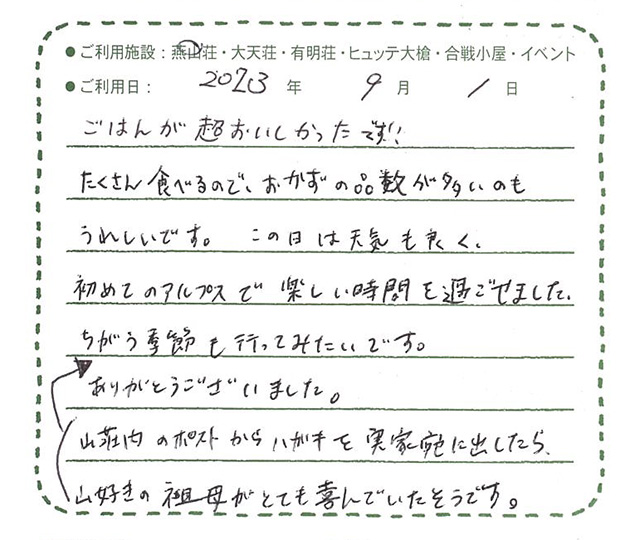 ご利用施設：燕山荘・大天荘・有明荘・ヒュッテ大槍・合戦小屋・イベント
ご利用日： 2023 年 9 月 1 日
ごはんが超おいしかったです!!
たくさん食べるので、おかずの品数が多いのも
うれしいです。 この日は天気も良く、
初めてのアルプスで楽しい時間を過ごせました。
ちがう季節も行ってみたいです。
ありがとうございました。
山荘内のポストからハガキを実家宛に出したら、
山好きの祖母がとても喜んでいたそうです。